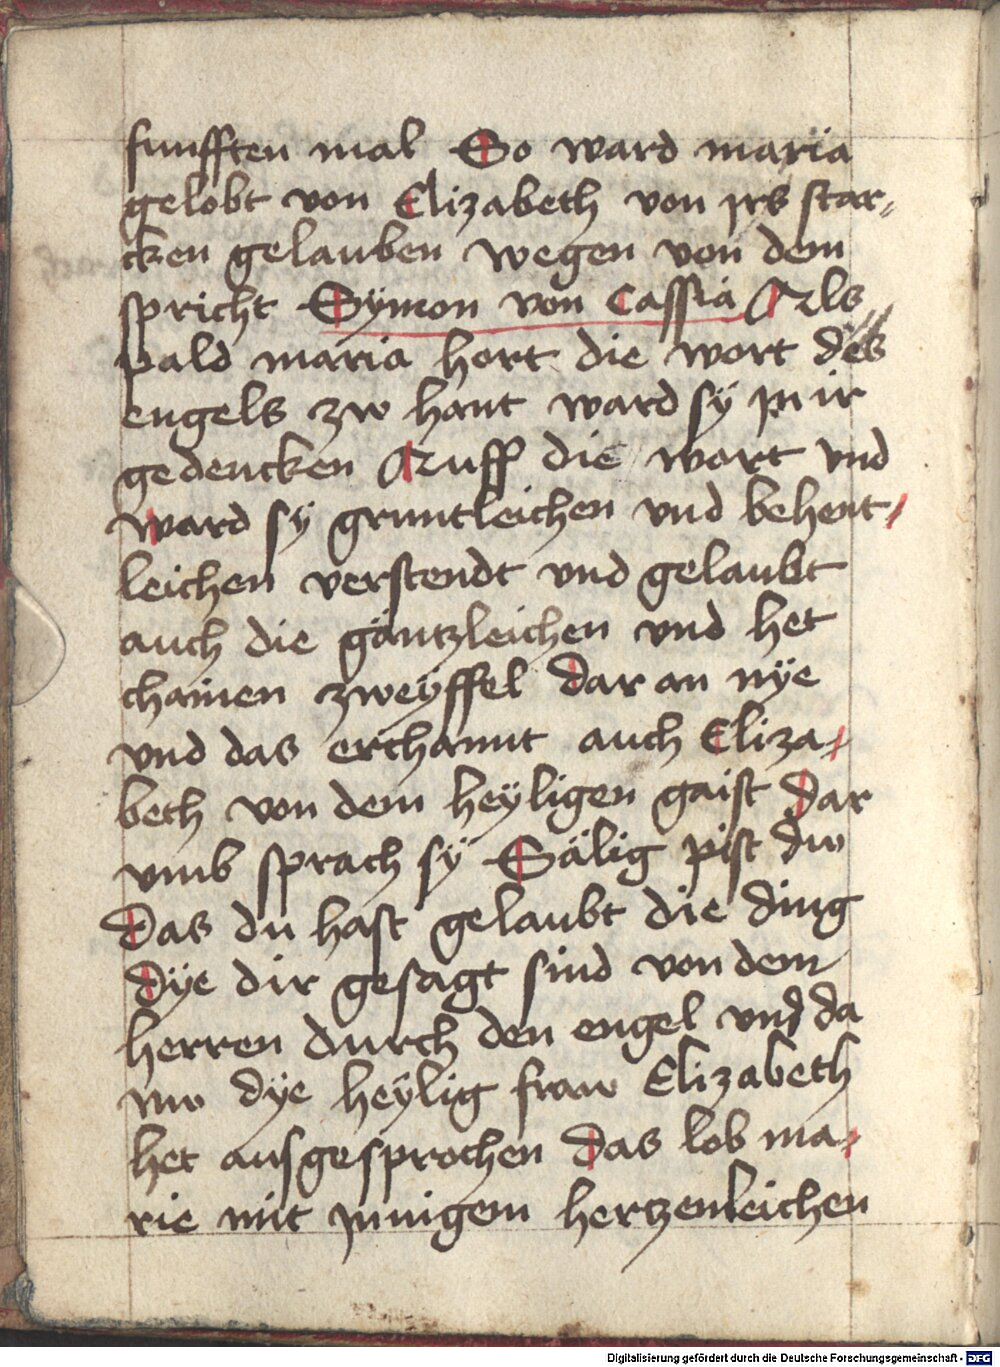 funfften mal So ward maria
gelobt von Elizabeth von irs star⸗
cken gelauben wegen von dem
spricht Symon von Cassia Als
pald maria hort die wort des
engels zw hant ward sÿ in ir
gedencken Auff die wort vnd
ward sÿ gruntleichen vnd behent⸗
leichen verstendt vnd gelaubt
auch die gäntzleichen vnd het
chainen zweÿffel dar an nÿe
vnd das erchannt auch Eliza⸗
beth von dem heÿligen gaist Dar
vmb sprach sÿ Sälig pist dw
Das du hast gelaubt die ding
Dÿe dir gesagt sind von dem
herren durch den engel vnd da
nw dÿe heÿlig fraw Elizabeth
het ausgesprochen Das lob ma⸗
rie mit innigem hertzenleichen
Digitalisierung gefördert durch die Deutsche Forschungsgemeinschaft - DFG